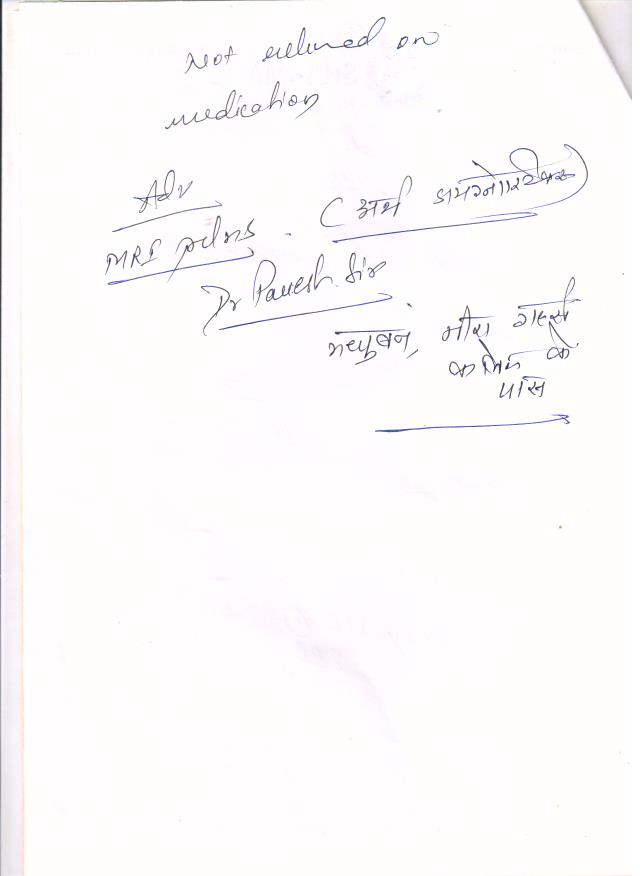 Not relieved on
medication
Adv
MRI (अर्थ डायग्नोस्टिक)
Dr Paresh Sir
मधुबन, मीरा गर्ल्स
कॉलेज के
पास